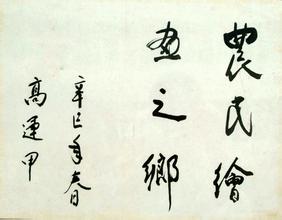 農民繪
畫之鄉
辛巳年春日
高運甲